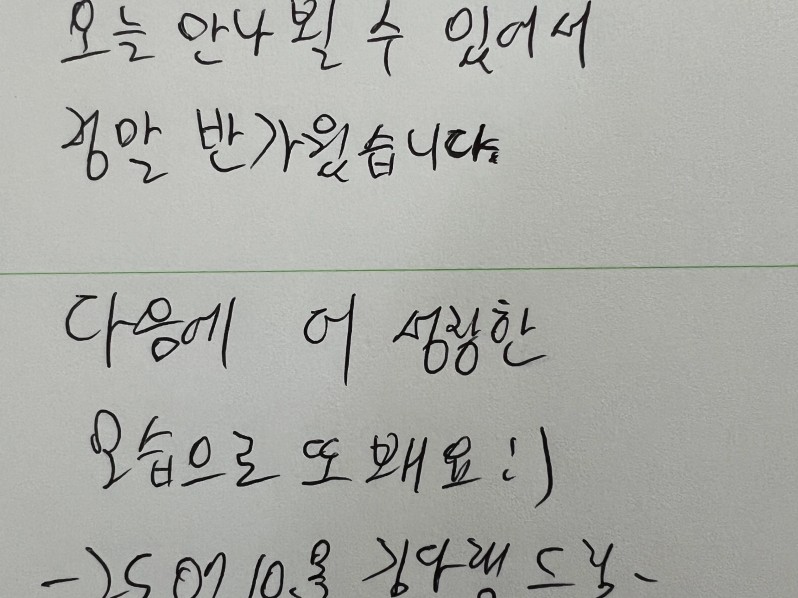 오늘 만나 뵐 수 있어서
정말 반가웠습니다.
다음에 더 성장한
모습으로 또 봬요 :)
드림-